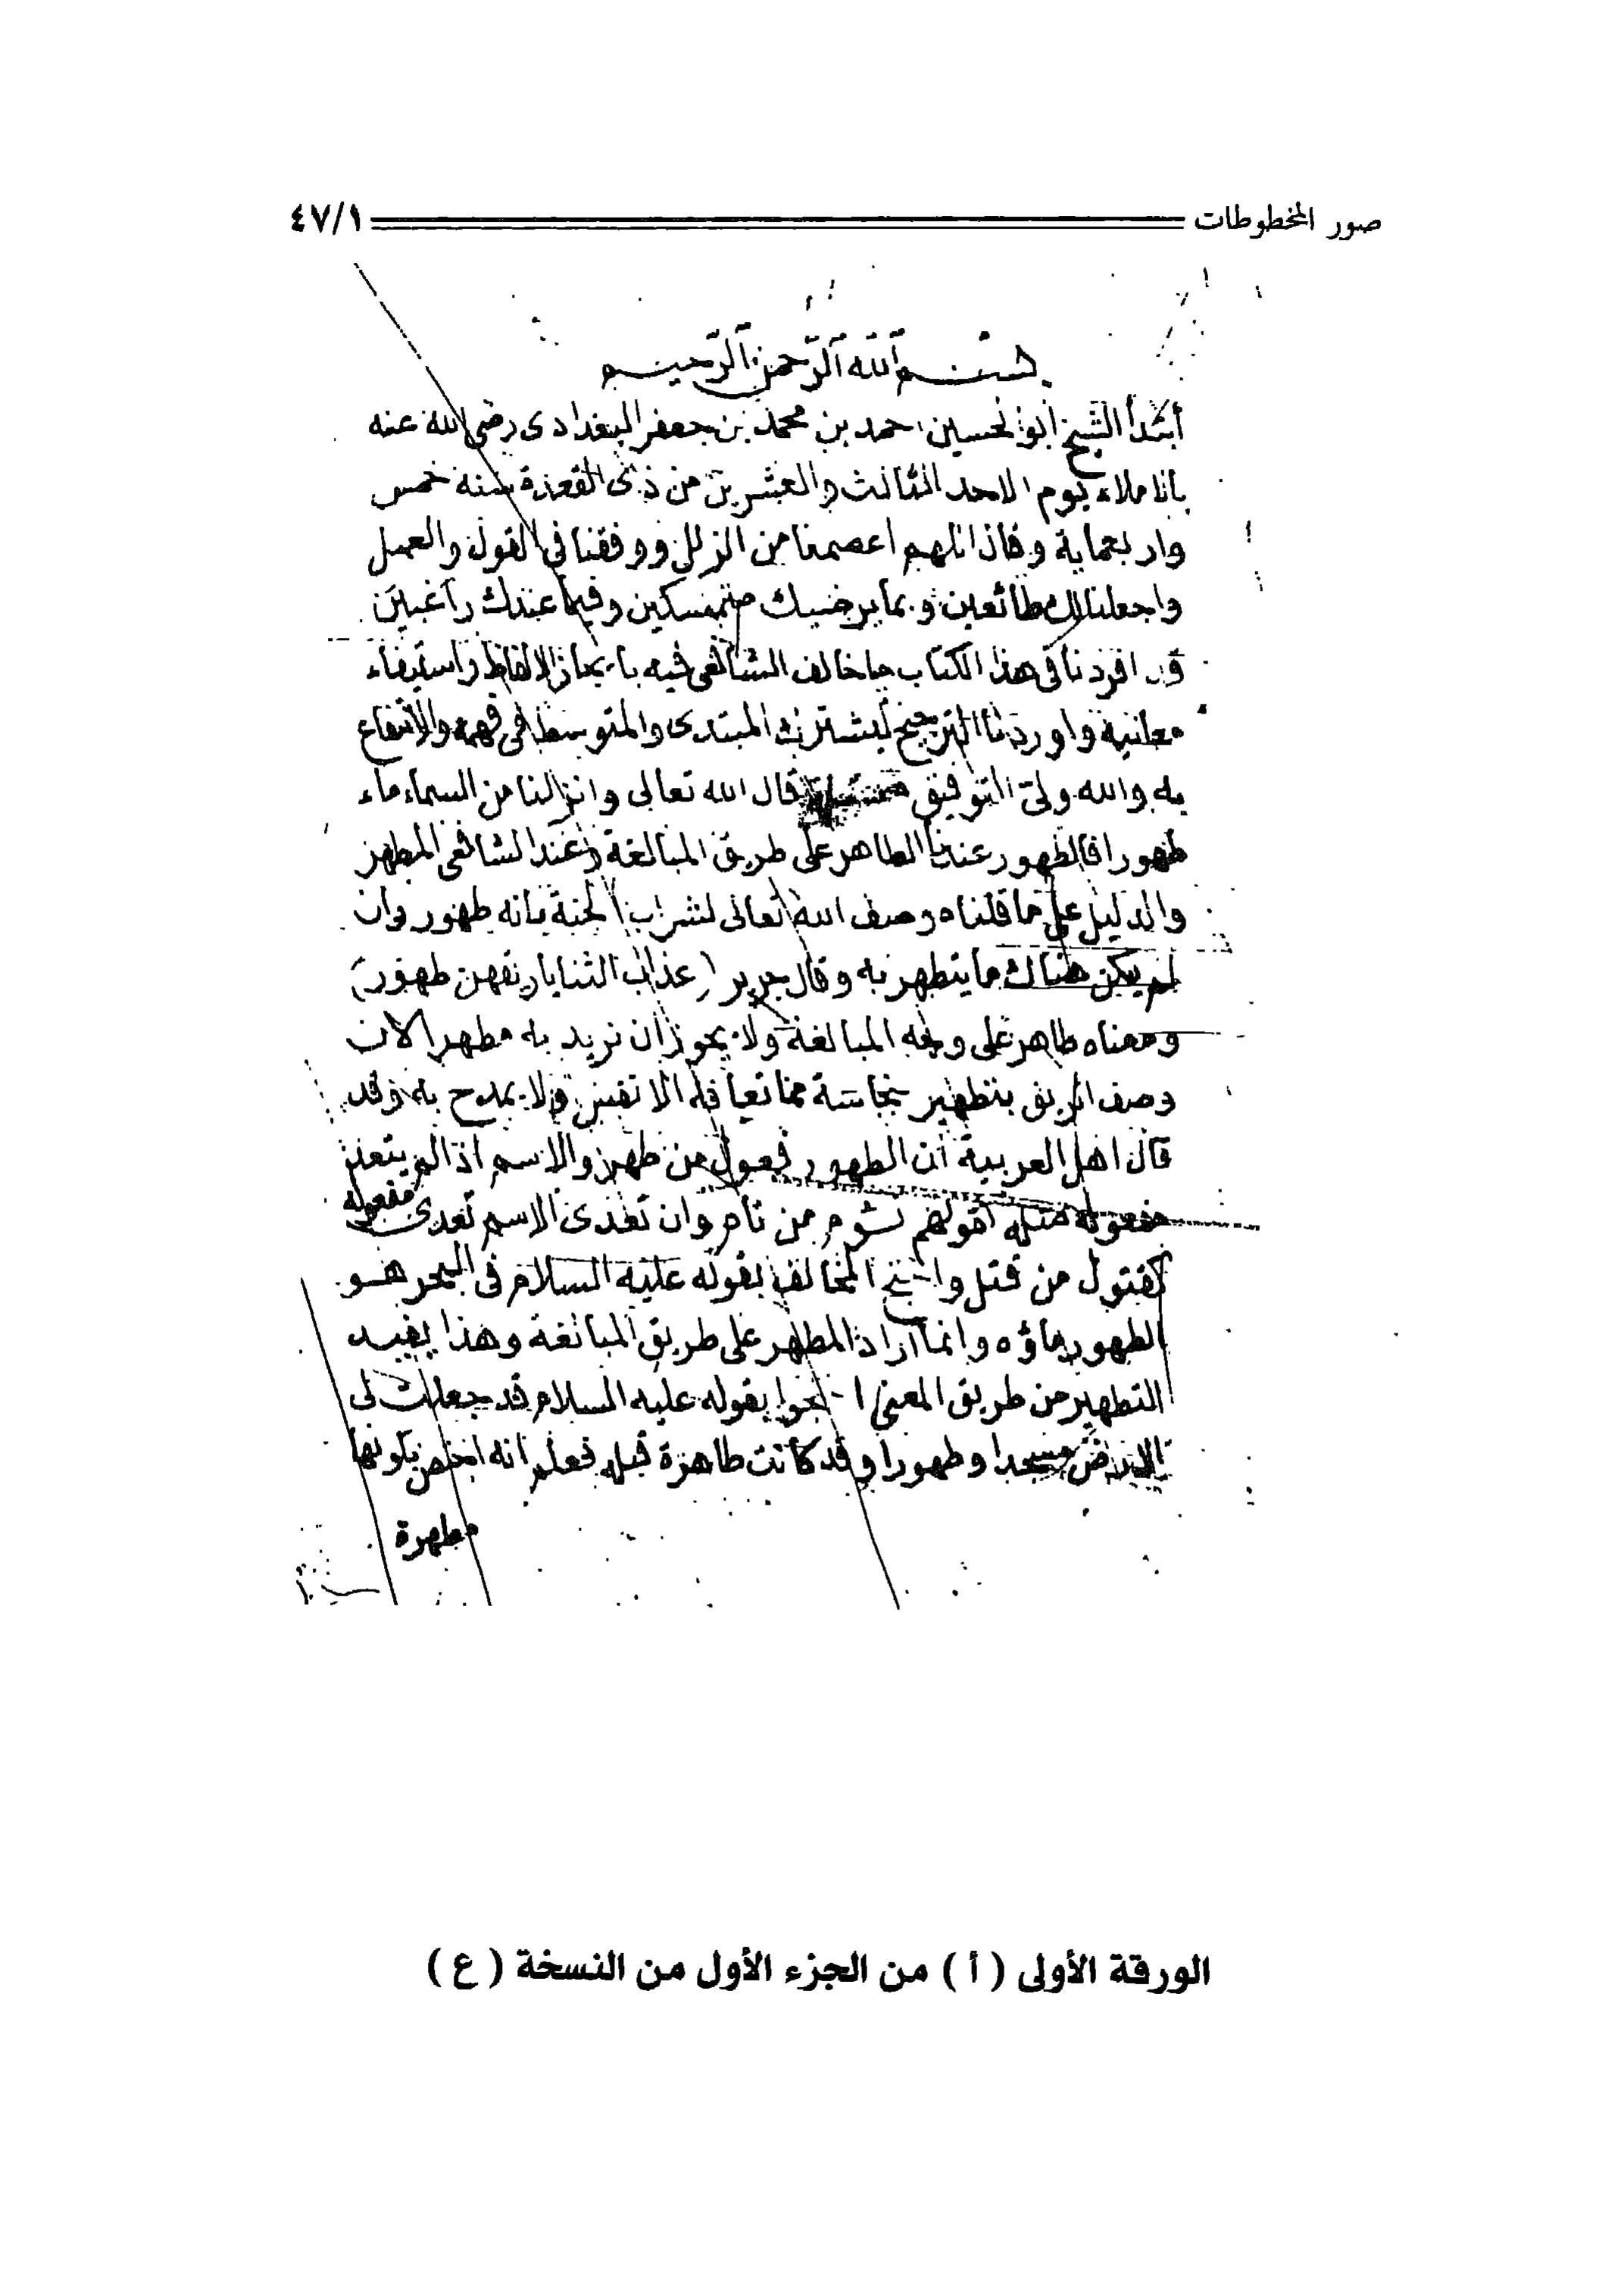 صور المخطوطات ٤٧/١
بسم الله الرحمن الرحيم
أبتدأ الشيخ ابو الحسين احمد بن محمد بن جعفر البغدادى رضى الله عنه
باملاء يوم الاحد الثالث والعشرين من ذى القعدة سنة خمس
واربعماية وقال اللهم اعصمنا من الزلل ووفقنا فى القول والعمل
واجعلنا لك طائعين وبما يرضيك متمسكين وفيما عندك راغبين
قد افردنا فى هذا الكتاب ما خالف الشافعى فيه بايجاز الالفاظ واستيفاء
معانيه واوردنا الترجيح ليشترك المبتدى والمتوسط فى فهمه والانتفاع
به والله ولى التوفيق مسئلة قال الله تعالى وانزلنا من السماء ماء
طهورا فالطهور عندنا الطاهر على طريق المبالغة وعند الشافعى المطهر
والدليل على ما قلناه وصف الله تعالى لشراب الجنة بانه طهور وان
لم يكن هناك ما يتطهر به وقال جرير (عذاب الثنايا ريقهن طهور)
ومعناه طاهر على وجه المبالغة ولا يجوز ان نريد به مطهرا لان
وصف الريق بتطهير نجاسة مما تعافه الانفس ولا يمدح به وقد
قال اهل العربية ان الطهور فعول من طهر والاسم اذا لم يتعد
مفعوله مثله قولهم نؤوم من نام وان تعدى الاسم تعدى مفعوله
كقتول من قتل واحتج المخالف بقوله عليه السلام فى البحر هو
الطهور ماؤه وانما اراد المطهر على طريق المبالغة وهذا يفيد
التطهير من طريق المعنى احتجوا بقوله عليه السلام قد جعلت لى
الارض مسجدا وطهورا وقد كانت طاهرة قبله فعلم انه اختص بكونها
مطهرة
الورقة الأولى ( أ ) من الجزء الأول من النسخة ( ع )